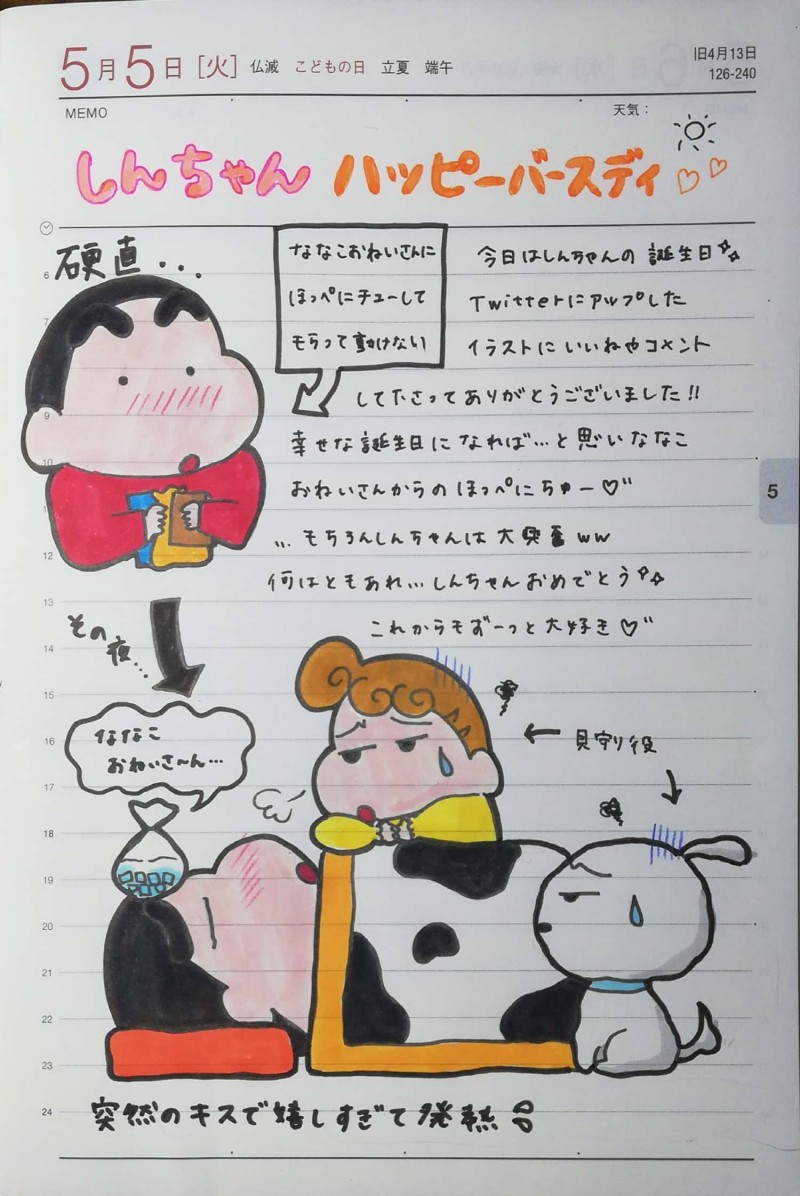 5月5日[火] 仏滅 こどもの日 立夏 端午
旧4月13日
126-240
MEMO
天気：
しんちゃん ハッピーバースディ♡♡
硬直...
ななこおねいさんに
ほっぺにチューして
もらって動けない
今日はしんちゃんの誕生日
Twitterにアップした
イラストにいいねやコメント
してださってありがとうございました!!
幸せな誕生日になれば...と思いななこ
おねいさんからのほっぺにちゅー♡"
...もちろんしんちゃんは大興奮ww
何はともあれ...しんちゃんおめでとう
これからもずーっと大好き♡"
その
夜...
ななこ
おねいさ〜ん...
← 見守り役
突然のキスで嬉しすぎて発熱
5
6
7
9
10
11
12
13
14
15
16
17
18
19
20
21
22
23
24